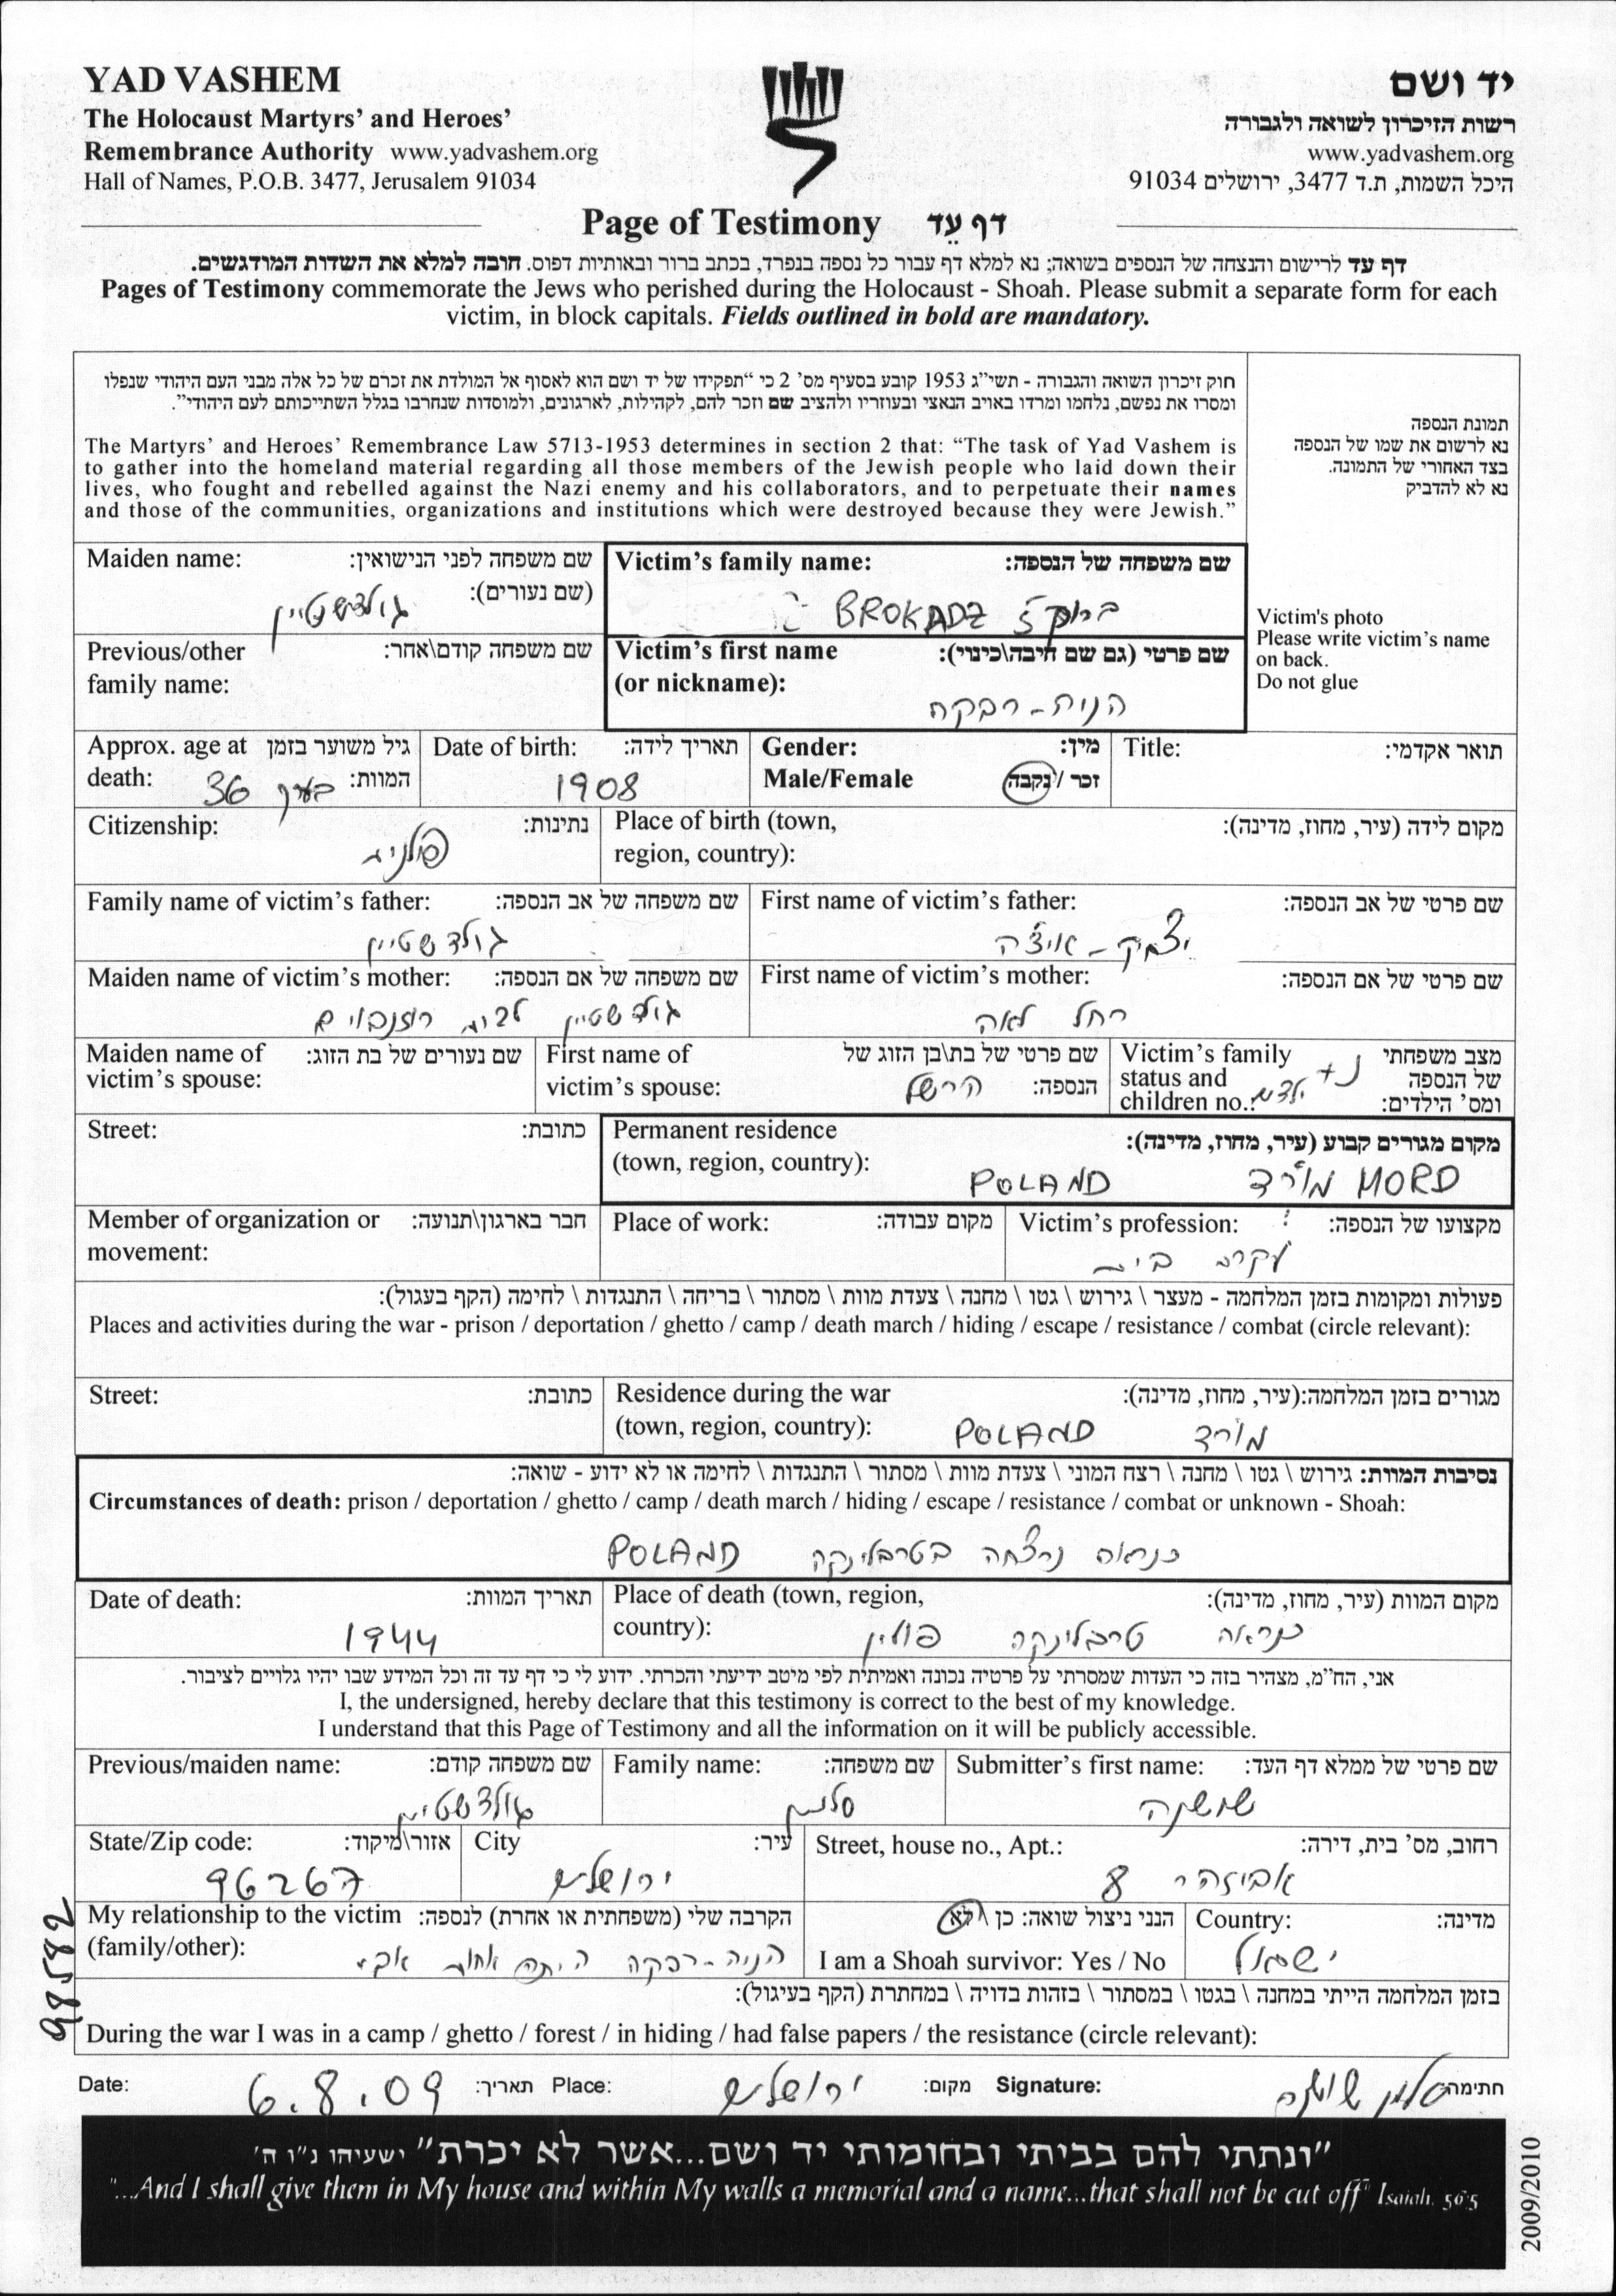 YAD VASHEM
The Holocaust Martyrs' and Heroes'
Remembrance Authority www.yadvashem.org
Hall of Names, P.O.B. 3477, Jerusalem 91034
יד ושם
רשות הזיכרון לשואה ולגבורה
www.yadvashem.org
היכל השמות, ת.ד 3477, ירושלים 91034
Page of Testimony דף עֵד
דף עד לרישום והנצחה של הנספים בשואה; נא למלא דף עבור כל נספה בנפרד, בכתב ברור ובאותיות דפוס. חובה למלא את השדות המודגשים.
Pages of Testimony commemorate the Jews who perished during the Holocaust - Shoah. Please submit a separate form for each
victim, in block capitals. Fields outlined in bold are mandatory.
חוק זיכרון השואה והגבורה - תשי"ג 1953 קובע בסעיף מס' 2 כי "תפקידו של יד ושם הוא לאסוף אל המולדת את זכרם של כל אלה מבני העם היהודי שנפלו
ומסרו את נפשם, נלחמו ומרדו באויב הנאצי ובעוזריו ולהציב שם וזכר להם, לקהילות, לארגונים, ולמוסדות שנחרבו בגלל השתייכותם לעם היהודי".
The Martyrs' and Heroes' Remembrance Law 5713-1953 determines in section 2 that: "The task of Yad Vashem is
to gather into the homeland material regarding all those members of the Jewish people who laid down their
lives, who fought and rebelled against the Nazi enemy and his collaborators, and to perpetuate their names
and those of the communities, organizations and institutions which were destroyed because they were Jewish."
תמונת הנספה
נא לרשום את שמו של הנספה
בצד האחורי של התמונה.
נא לא להדביק
Victim's photo
Please write victim's name
on back.
Do not glue
Maiden name: שם משפחה לפני הנישואין:
(שם נעורים):
גולדשטיין
Victim's family name: שם משפחה של הנספה:
BROKADZ
Previous/other שם משפחה קודם\אחר:
family name:
Victim's first name שם פרטי (גם שם חיבה\כינוי):
(or nickname):
הניה - רבקה
Approx. age at גיל משוער בזמן
death: המוות:
בערך 36
Date of birth: תאריך לידה:
1908
Gender: מין:
Male/Female זכר / נקבה
Title: תואר אקדמי:
Citizenship: נתינות:
פולניה
Place of birth (town, מקום לידה (עיר, מחוז, מדינה):
region, country):
Family name of victim's father: שם משפחה של אב הנספה:
גולדשטיין
First name of victim's father: שם פרטי של אב הנספה:
יצחק - איצ'ה
Maiden name of victim's mother: שם משפחה של אם הנספה:
גולדשטיין לבית רוזנבוים
First name of victim's mother: שם פרטי של אם הנספה:
רחל לאה
Maiden name of שם נעורים של בת הזוג:
victim's spouse:
First name of שם פרטי של בת\בן הזוג של
victim's spouse: הנספה:
הרשל
Victim's family מצב משפחתי
status and של הנספה
children no.: ומס' הילדים:
נ + ילדים
Street: כתובת:
Permanent residence מקום מגורים קבוע (עיר, מחוז, מדינה):
(town, region, country):
מורד MORD POLAND
Member of organization or חבר בארגון\תנועה:
movement:
Place of work: מקום עבודה:
Victim's profession: מקצועו של הנספה:
עקרת בית
פעולות ומקומות בזמן המלחמה - מעצר \ גירוש \ גטו \ מחנה \ צעדת מוות \ מסתור \ בריחה \ התנגדות \ לחימה (הקף בעגול):
Places and activities during the war - prison / deportation / ghetto / camp / death march / hiding / escape / resistance / combat (circle relevant):
Street: כתובת:
Residence during the war מגורים בזמן המלחמה:(עיר, מחוז, מדינה):
(town, region, country):
מורד POLAND
נסיבות המוות: גירוש \ גטו \ מחנה \ רצח המוני \ צעדת מוות \ מסתור \ התנגדות \ לחימה או לא ידוע - שואה:
Circumstances of death: prison / deportation / ghetto / camp / death march / hiding / escape / resistance / combat or unknown - Shoah:
כנראה נרצחה בטרבלינקה POLAND
Date of death: תאריך המוות:
1944
Place of death (town, region, מקום המוות (עיר, מחוז, מדינה):
country):
כנראה טרבלינקה פולין
אני, הח"מ, מצהיר בזה כי העדות שמסרתי על פרטיה נכונה ואמיתית לפי מיטב ידיעתי והכרתי. ידוע לי כי דף עד זה וכל המידע שבו יהיו גלויים לציבור.
I, the undersigned, hereby declare that this testimony is correct to the best of my knowledge.
I understand that this Page of Testimony and all the information on it will be publicly accessible.
Previous/maiden name: שם משפחה קודם:
גולדשטיין
Family name: שם משפחה:
סלמן
Submitter's first name: שם פרטי של ממלא דף העד:
שושנה
State/Zip code: אזור\מיקוד:
96267
City עיר:
ירושלים
Street, house no., Apt.: רחוב, מס' בית, דירה:
אביזהר 8
My relationship to the victim הקרבה שלי (משפחתית או אחרת) לנספה:
(family/other):
הניה - רבקה היתה אחות אבי
הנני ניצול שואה: כן \ לא
I am a Shoah survivor: Yes / No
Country: מדינה:
ישראל
בזמן המלחמה הייתי במחנה \ בגטו \ במסתור \ בזהות בדויה \ במחתרת (הקף בעיגול):
During the war I was in a camp / ghetto / forest / in hiding / had false papers / the resistance (circle relevant):
Date: 6.8.09 תאריך: Place: ירושלים מקום: Signature: סלמן שושנה חתימה
"ונתתי להם בביתי ובחומותי יד ושם...אשר לא יכרת" ישעיהו נ"ו ה'
"...And I shall give them in My house and within My walls a memorial and a name...that shall not be cut off" Isaiah. 56:5
98582
2009/2010